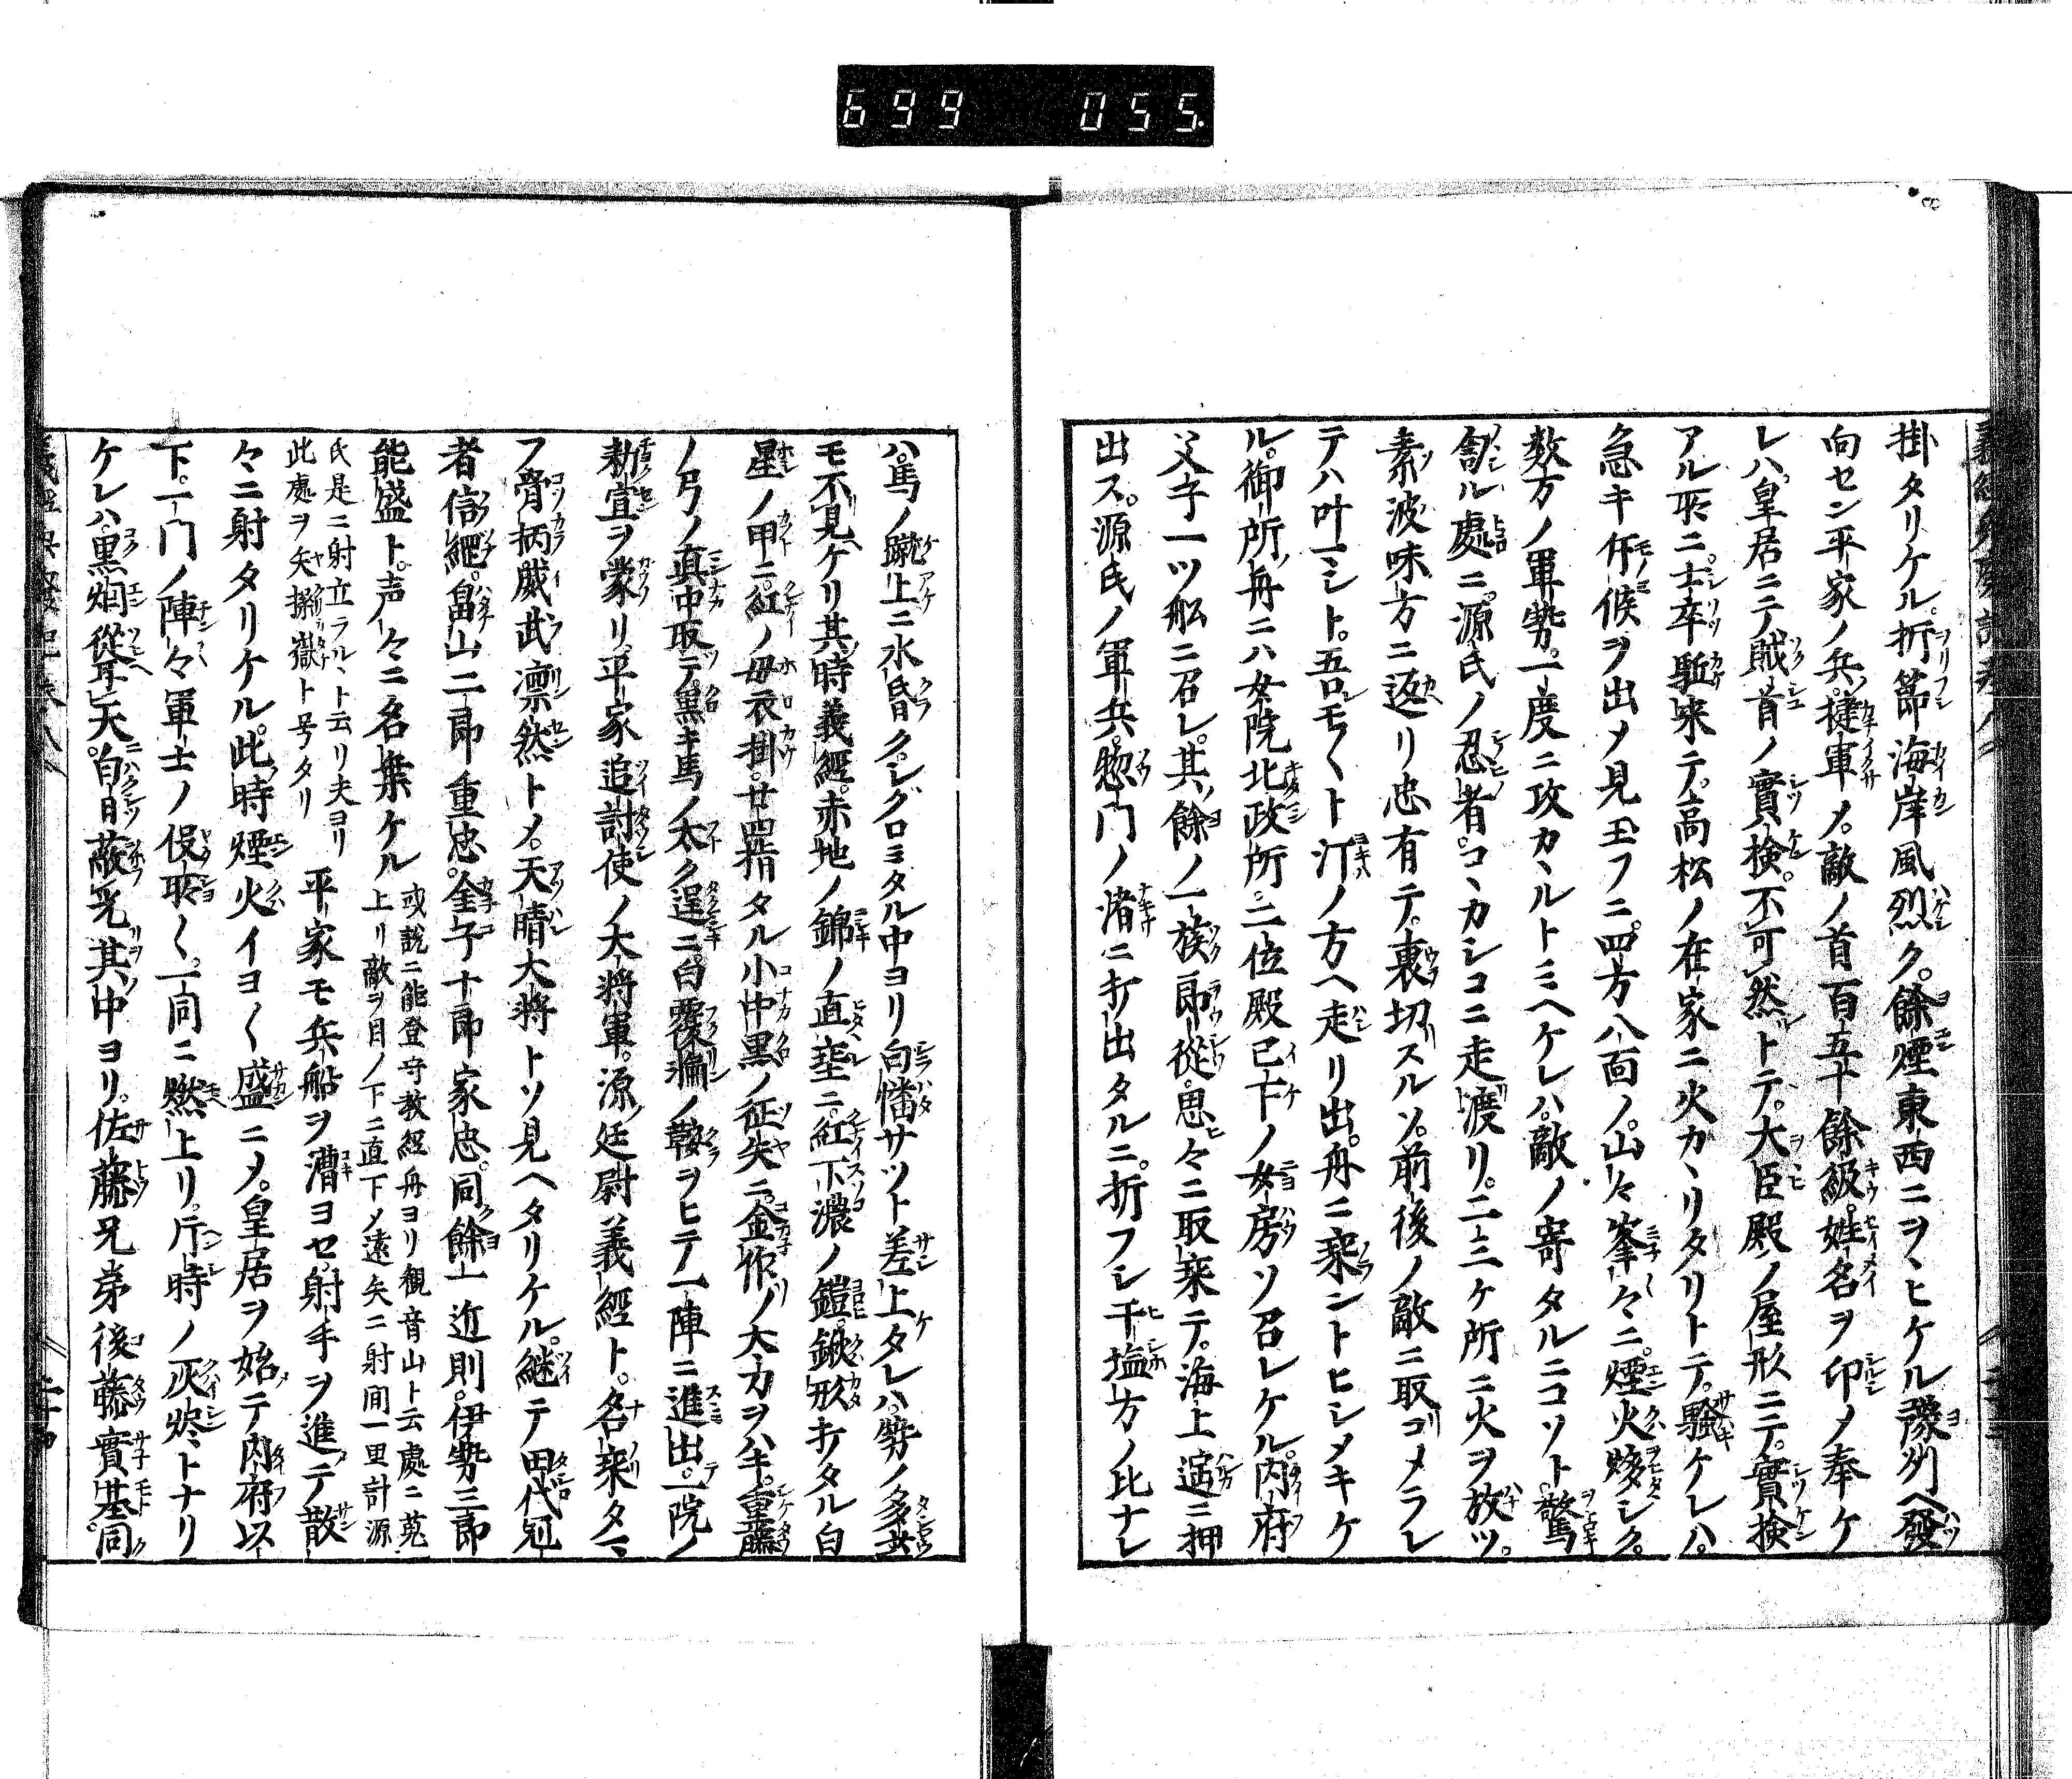 699 055
掛タリケル。折節海岸風烈ク。餘煙東西ニヲヽヒケル豫州ヘ發
向セン平家ノ兵。揵軍メ。敵ノ首百五十餘級。姓名ヲ印メ奉ケ
レハ。皇居ニテ賊首ノ實檢。不可然トテ。大臣殿ノ屋形ニテ。實檢
アル所ニ。士卒駈来テ。高松ノ在家ニ火カヽリタリトテ。騒ケレハ。
急キ斥候ヲ出メ見玉フニ。四方八面ノ。山々峯々ニ。煙火熢シク。
数万ノ軍勢。一度ニ攻カヽルトミヘケレハ。敵ノ寄タルニコソト。驚
ル處ニ。源氏ノ忍者。コヽカシコニ走渡リ。二三ケ所ニ火ヲ放ツ。
素波味方ニ返リ忠有テ。裏切スルソ。前後ノ敵ニ取コメラレ
テハ叶マシト。吾モ〱ト汀ノ方ヘ走リ出。舟ニ乗ントヒシメキケ
ル。御所ノ舟ニハ女院北政所。二位殿已下ノ女房ソ召レケル。内府
父子一ツ舩ニ召レ。其餘ノ一族郎從。思々ニ取乗テ。海上遥ニ押
出ス。源氏ノ軍兵。惣門ノ渚ニ打出タルニ。折フシ干塩方ノ比ナレ
ハ。馬ノ蹴上ニ水昏ク。シグロミタル中ヨリ白幡サツト差上タレハ。勢ノ多少
モ不見ケリ其時義經。赤地ノ錦ノ直埀ニ。紅下濃ノ鎧。鍬形打タル白
星ノ甲ニ。紅ノ母衣掛。廿四指タル小中黒ノ征矢ニ。金作ノ大刀ヲハキ。重藤
ノ弓ノ真中取テ。黒キ馬ノ太ク逞ニ。白覆輪ノ鞍ヲヒテ。一陣ニ進出。一院ノ
勅宣ヲ蒙リ。平家追討使ノ大将軍。源廷尉義經ト。名乗タマ
フ骨柄威武凛然トメ。天晴大将トソ見ヘタリケル。継テ田代冠
者信綱。畠山二郎重忠。金子十郎家忠。同餘一近則。伊勢三郎
能盛ト。声々ニ名乗ケル 或説ニ能登守教經舟ヨリ観音山ト云處ニ
上リ敵ヲ目ノ下ニ直下メ遠矢ニ射間一里計源
氏是ニ射立ラルヽト云リ夫ヨリ
此處ヲ矢 嶽ト号タリ 平家モ兵船ヲ漕ヨセ。射手ヲ進テ散
々ニ射タリケル。此時煙火イヨ〱盛ニメ。皇居ヲ始テ内府以
下。一門ノ陣々軍士ノ役所〱。一同ニ燃上リ。片時ノ灰燼トナリ
ケレハ。黒烟 天。白日蔽光其中ヨリ。佐藤兄弟後藤實基。同